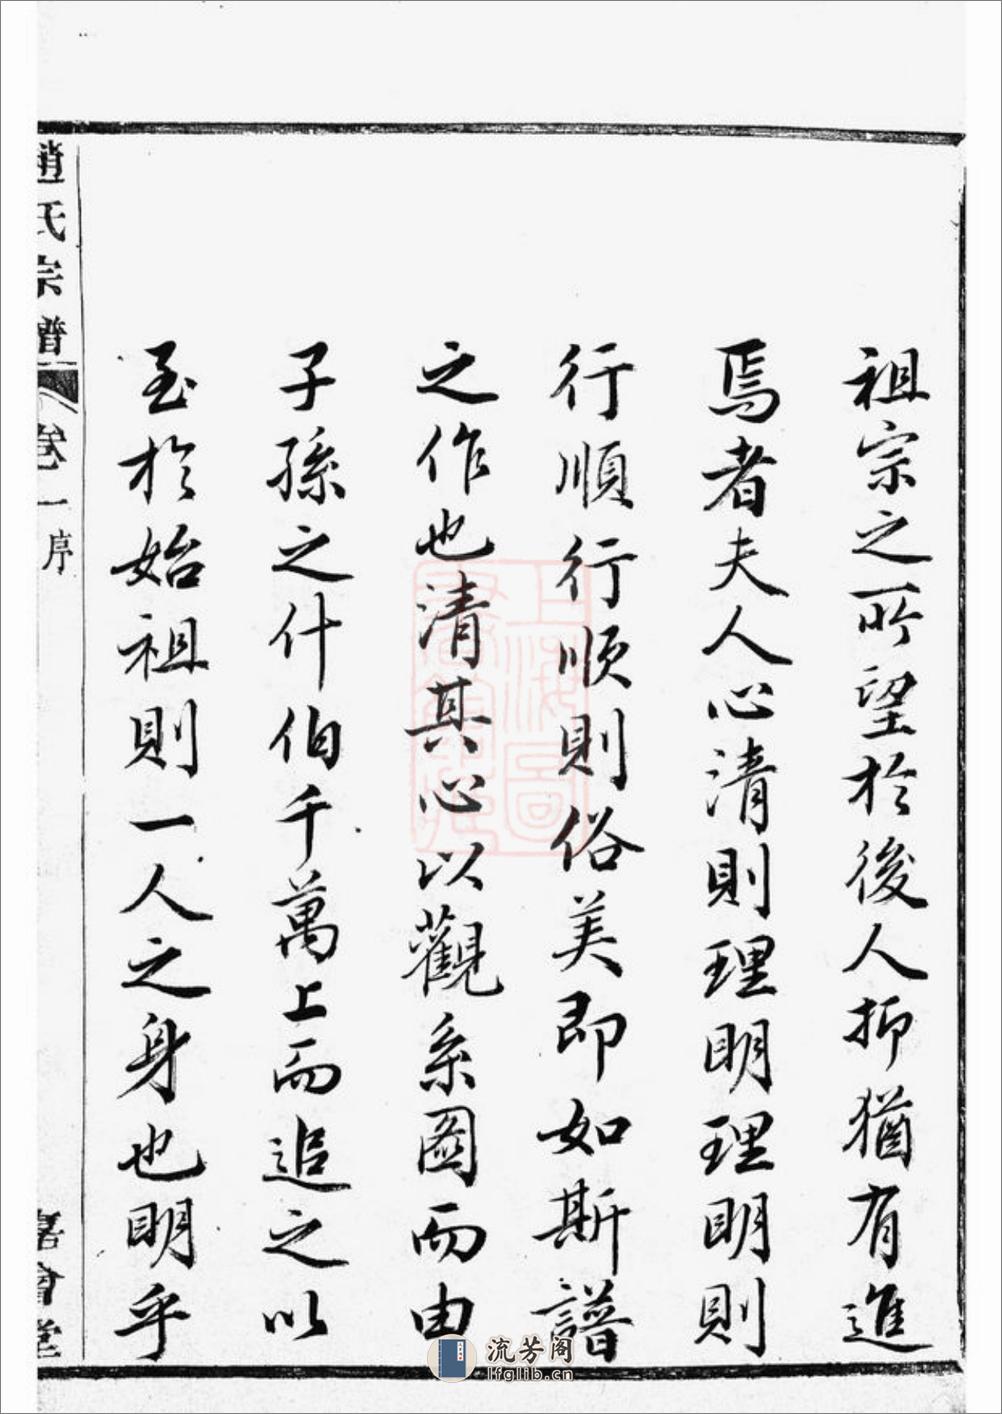 祖宗之所望於後人抑猶有進
焉者夫人心清則理明理明則
行順行順則俗美即如斯譜
之作也清其心以觀系圖而由
子孫之什伯千萬上而追之以
至於始祖則一人之身也明乎
趙氏宗譜 卷一 序 嘉會堂
上海圖書館藏
流芳阁
lfglib.cn